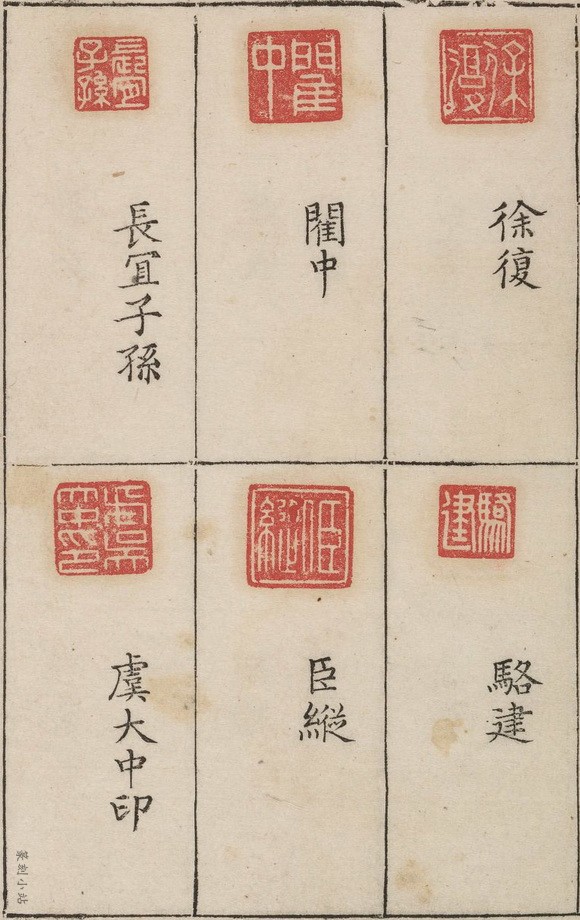 徐復
閵中
長宜子孫
駱建
臣縱
虞大中印
篆刻小站